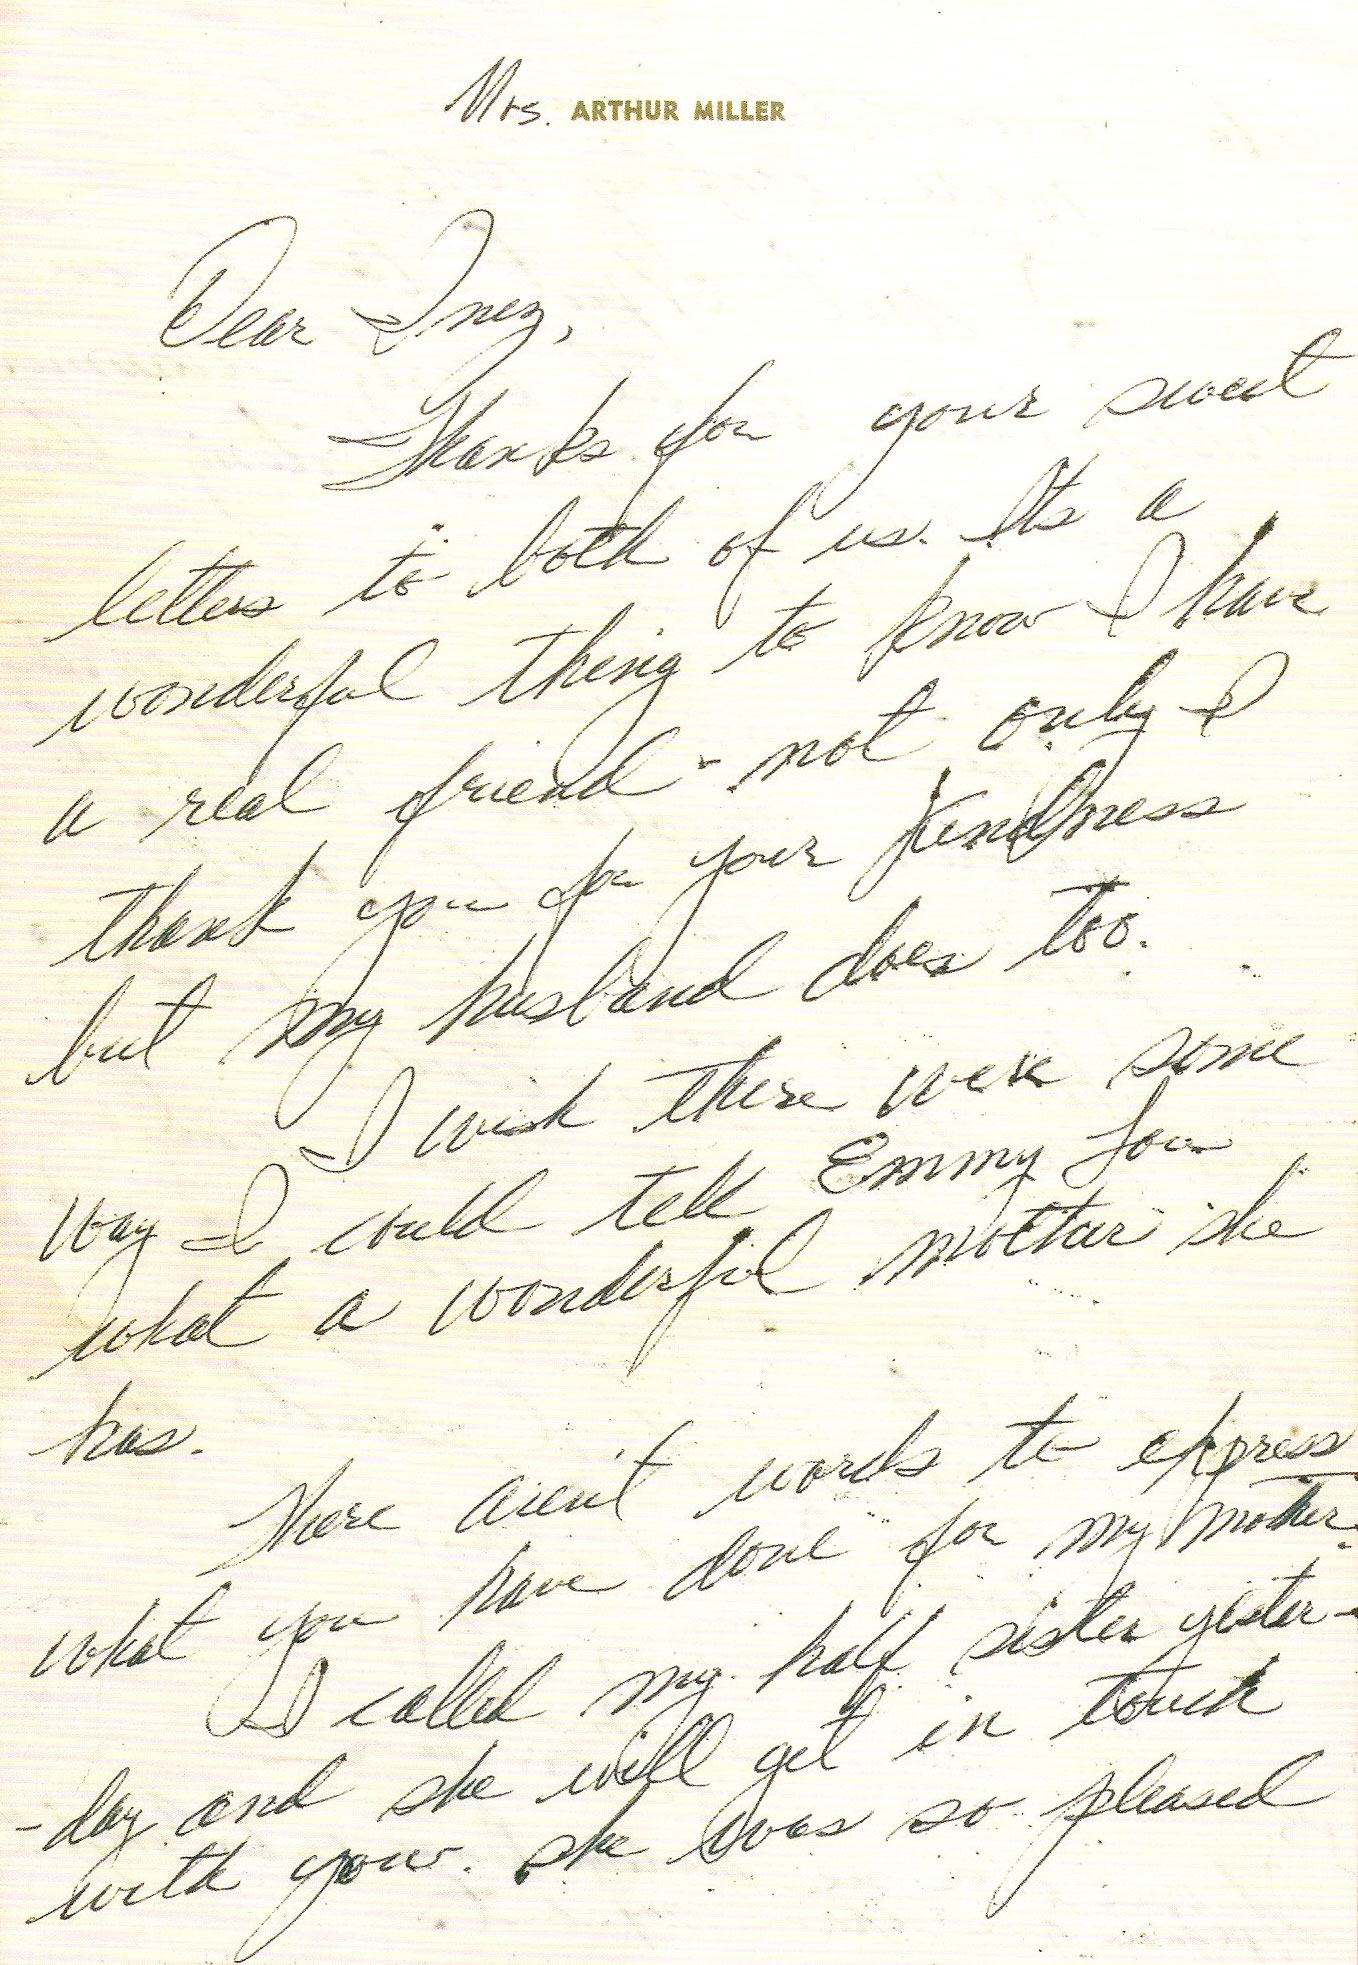 Mrs. ARTHUR MILLER
Dear Inez,
Thanks for your sweet
letters to both of us. Its a
wonderful thing to know I have
a real friend - not only I
thank you for your kindness
but my husband does too.
I wish there were some
way I could tell Emmy Lou
what a wonderful mother she
has.
There aren't words to express
what you have done for my mother.
I called my half sister yester-
-day and she will get in touch
with you. She was so pleased